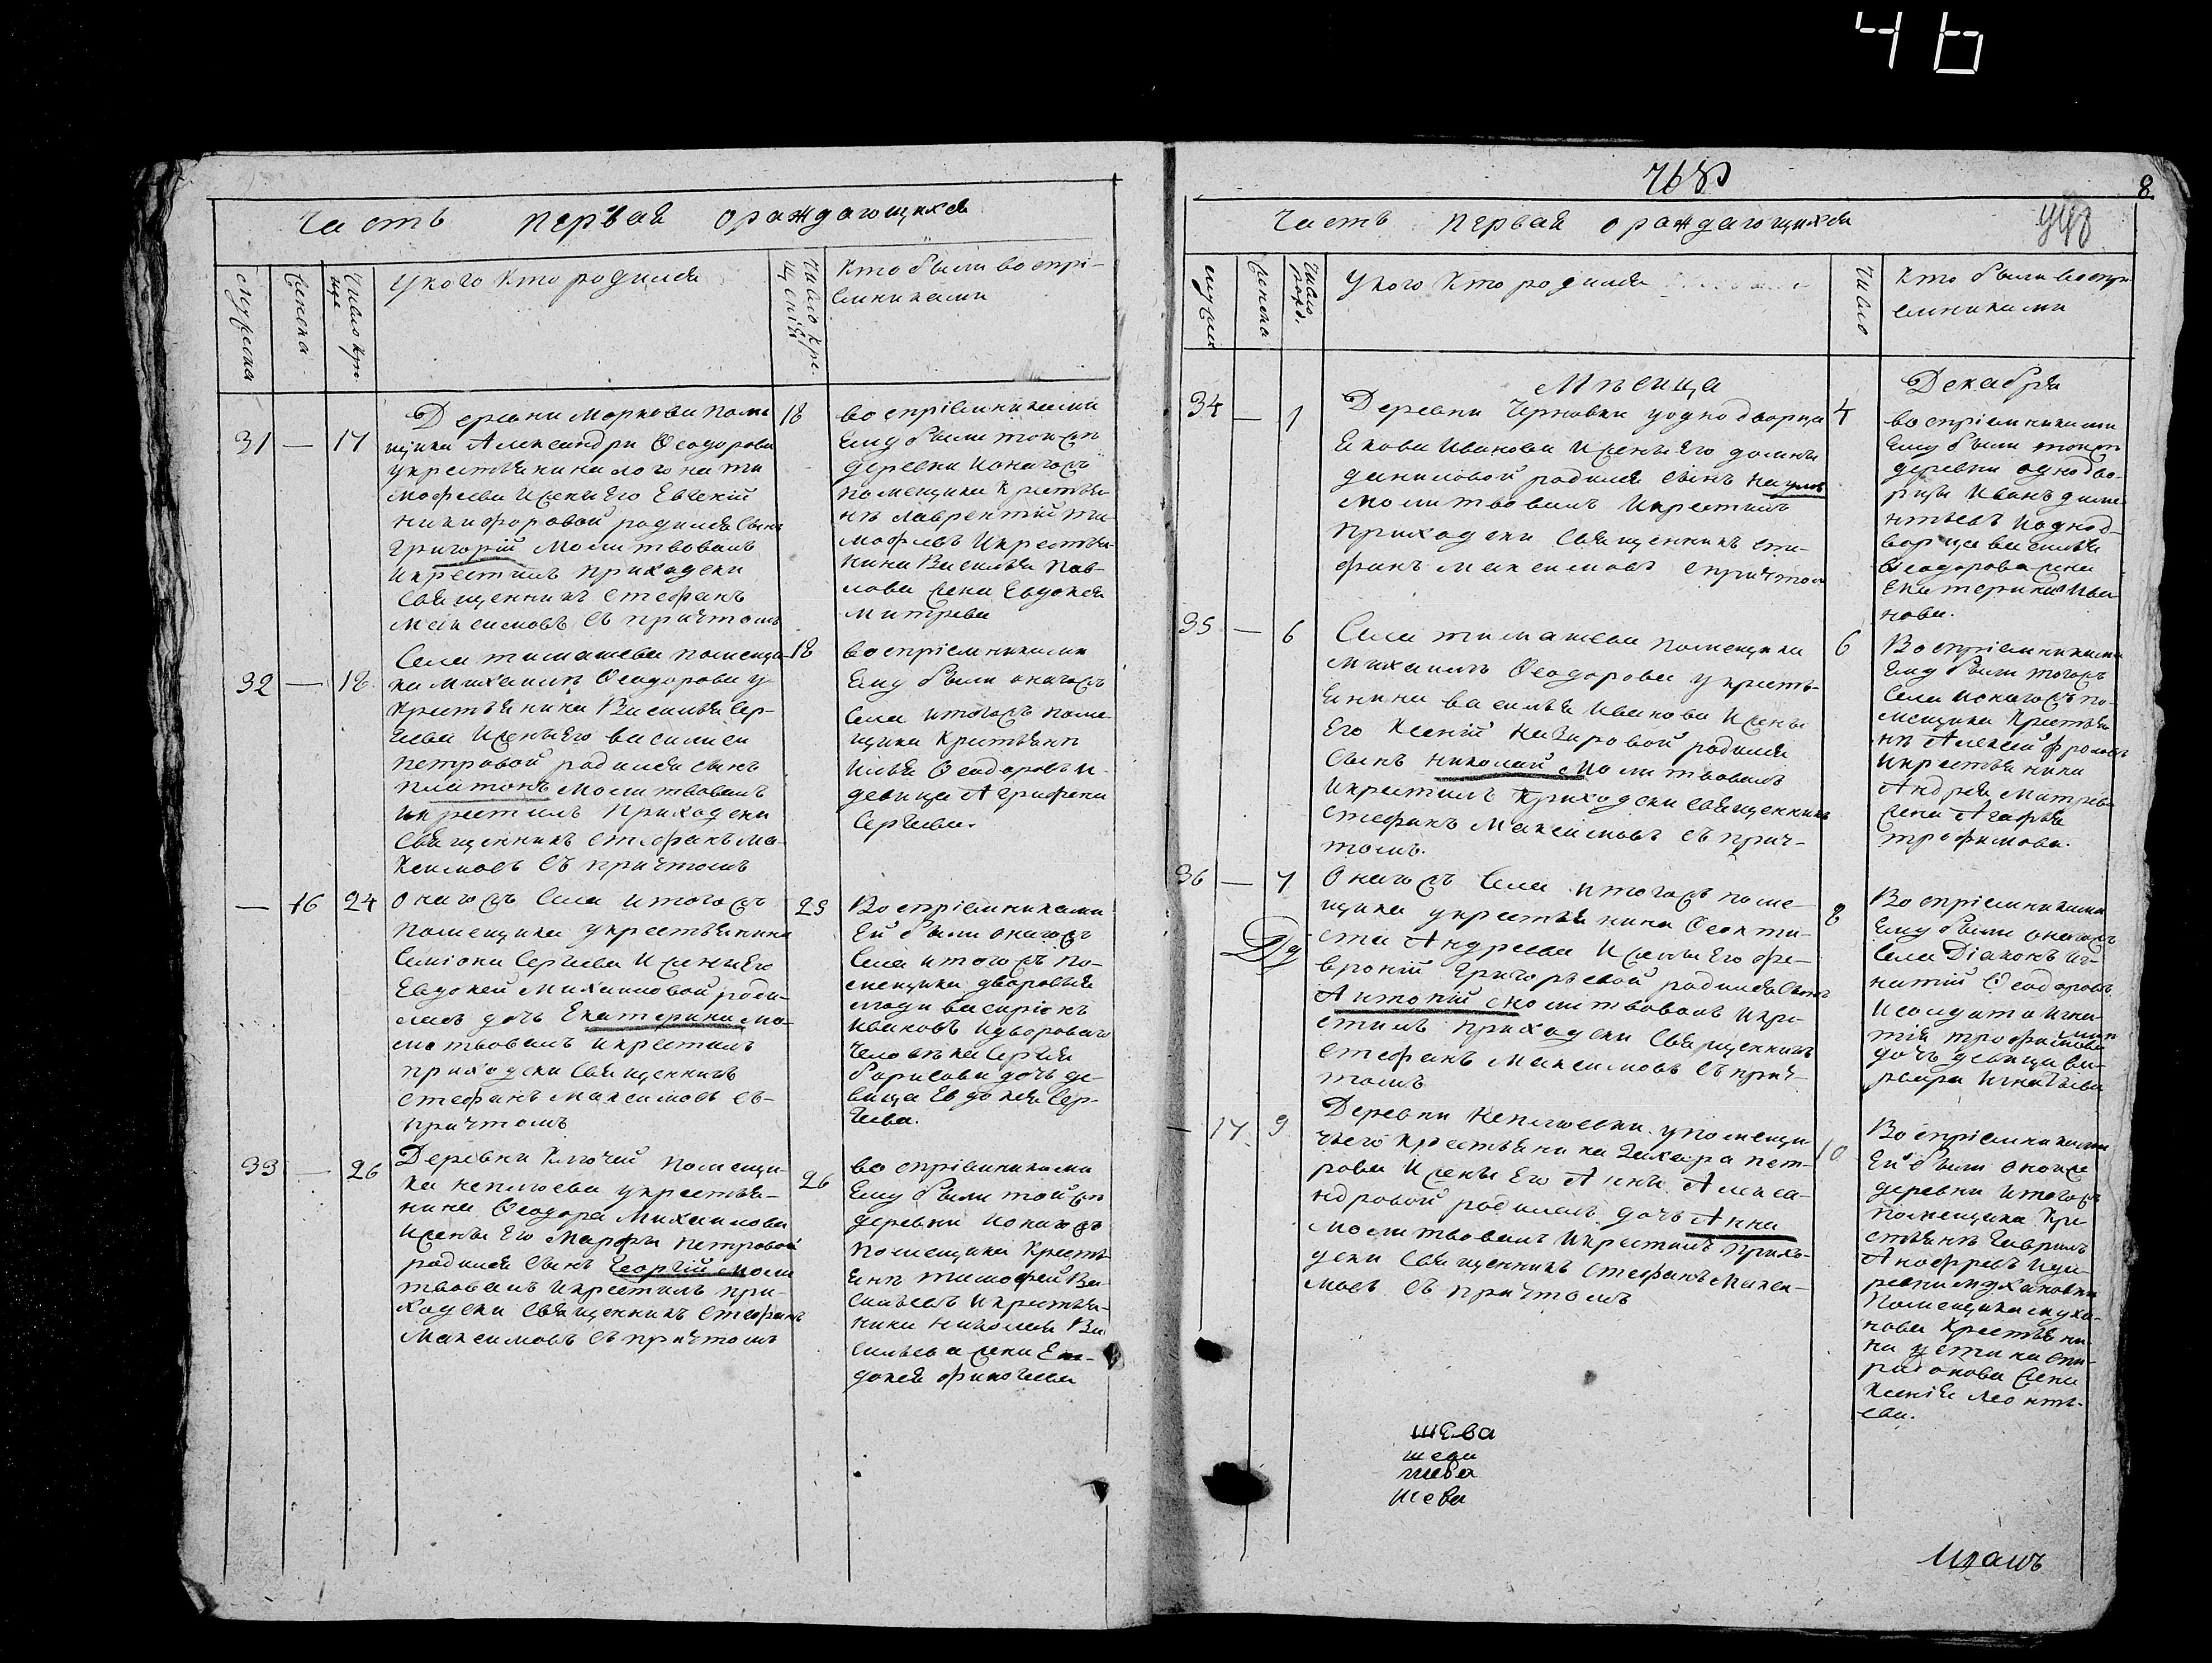 46
768
8
Часть первая ораждающихся
Мужеска
Женска
Число кре
ще
Укого Кто родился
Число Кре-
щенія
Кто были воспрі-
емниками
31 — 17
Деревни Моркови поме
щика Александра Ѳеодорова
укрестьянина логона ти
мофеева Ижены Его Евгеніи
никифоровой родился Сынъ
Григорій Молитвовалъ
Икрестилъ приходски
Священникъ Стефанъ
Максимовъ Съ причтомъ
18
воспріемниками
Ему были тойжъ
деревни Ионагожъ
помещика Крестьян-
нъ лаврентій ти-
мофеевъ Икрестья-
нина Василья Пав-
лова жена Евдокея
Митрева
32 — 18
Села тимашева помещи-
ка михаилъ Ѳеодорова у
Крестьянина Василья Сер-
геева Иженыего василиси
петровой родился сынъ
Платонъ молитвовалъ
икрестилъ Приходски
Священникъ стефанъ ма-
ксимовъ Съ причтомъ
18
воспріемниками
Ему были онагожъ
Села итогожъ поме
щика Крестьянъ
Илья Ѳеодоровъ и
девица Агрифена
Сергеева.
— 16 24
Онагожъ Села итогожъ
помещика укрестьянина
Симіона Сергеева Иженыего
Евдокеи Михаиловой роди-
лась дочь Екатерина мо-
литвовалъ икрестилъ
приходски Священникъ
Стефанъ Максимовъ съ-
причтомъ
25
Воспріемниками
Ей были онагожъ
Села итогожъ по-
мещика дворовыя
люди висаріонъ
Ивановъ Идворового
человека Сергея
борисова дочь де-
вица Евдокея Сер-
геева.
33 — 26
Деревни Ключей помещи-
ка неплюева укрестья-
нина Ѳеодора Михаилова
Ижены Его Марфы петровой
родился Сынъ Георгій Моли
твовалъ Икрестилъ при-
ходски Священникъ Стефанъ
Максимовъ Съ причтомъ
26
воспріемниками
Ему были тойжъ
деревни Ионагожъ
помещика Кресть
янъ тимофей Ва-
сильевъ Икрестья-
нина николая Ва
сильева жена Ев-
докея финогеева
Часть Первая ораждающихся
мужеска
женска
Число
рожд.
Укого Кто родился
Число
Кто были воспри
емниками
Мѣсяца Декабря
34 — 1
Деревни Чрновки уоднодворца
Екова Иванова Ижены Его домны
даниловой родился сынъ наумъ
Молитвовалъ Икрестилъ
приходски Священникъ сте-
фанъ максимовъ спричтом
4
воспріемниками
Ему были тойжъ
деревни однодво-
рцы Иванъ демен
тьевъ Иоднод-
ворца василья
Ѳеодорова жена
Екатерина Ива
нова.
35 — 6
Села тимашева помещика
михаилъ Ѳеодорова укресть-
янина василья Иванова Ижены
Его Ксеніи назаровой родился
Сынъ николай Молитвовалъ
Икрестилъ Приходски священникъ
стефанъ Максимовъ съ прич-
томъ.
6
Воспріемниками
Ему были тогожъ
Села Ионагожъ по-
мещика Крестья
нъ Алексей фроловъ
Икрестьянина
Андрея Митрева
жена Агафья
трофимова.
36 — 7
Онагожъ Села итогожъ поме-
щика укрестьянина Ѳеокти-
ста Андреева Ижены Его фе-
вроніи Григорьевой родился Сынъ
Антоній молитвовалъ Икре-
стилъ приходски Священникъ
стефанъ Максимовъ Съ прич-
томъ
8
Воспріемниками
Ему были онагожъ
Села Діаконъ иг-
натій Ѳеодоровъ
Исолдата Игна-
тія трофимова
дочь девица ва-
рвара Игнатьева
— 17 9
Деревни неплюевки упомещи
чьего крестьянина Захара пет-
рова Ижены Его Анны Алекса-
ндровой родилась дочь Анна
Молитвовалъ Икрестилъ Прихо-
дски Священникъ Стефанъ Макси-
мовъ Съ причтомъ
10
Воспріемниками
Ей были онойже
деревни итогожъ
помещика Кре-
стьянъ Гаврилъ
Анофревъ Иде-
ревни мухановки
помещика муха-
нова Крестьяни
на устина спи-
ридонова жена
Ксенія Леонть-
ева.
шева
шева
шева
шева